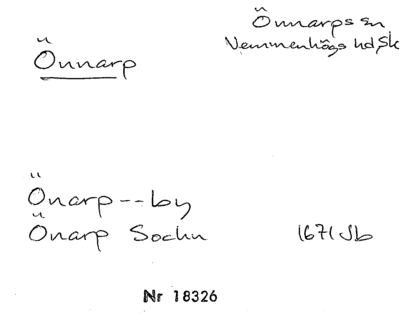 Önnarp
Önnarps sn
Vemmenhögs hd Sk
Önarp--by
Önarp Sochn 1671 Jb
Nr 18326